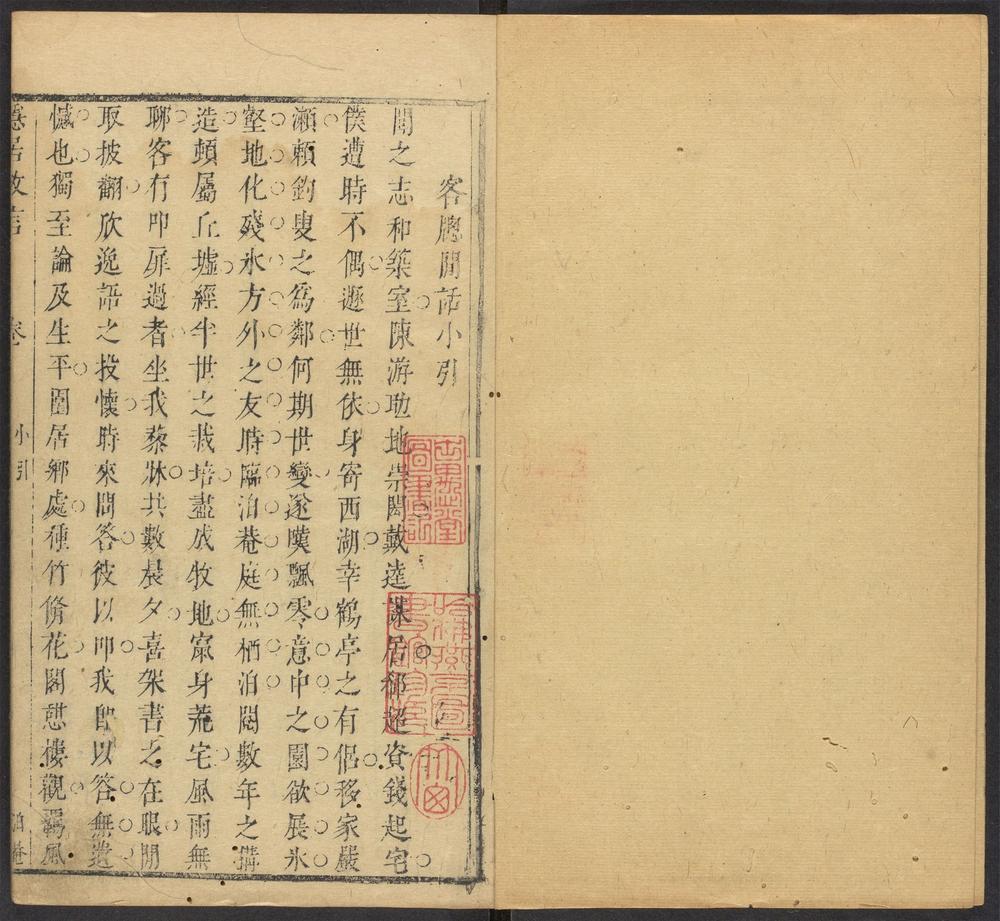 客牕閒話小引
聞之志和築室陳游助地崇閎戴逵謀居郗超資錢起宅
僕遭時不偶遯世無依身寄西湖幸鶴亭之有侶移家嚴
瀬賴釣叟之為鄰何期世變遂嘆飄零意中之園欲展氷
壑地化殘氷方外之友時臨泊菴庭無栖泊閱數年之搆
造頓屬丘墟經半世之栽培盡成牧地寘身荒宅風雨無
聊客有叩扉過者坐我藜牀共數晨夕喜架書之在眼閒
取披翻欣逸語之投懷時來問答彼以叩我卽以答無遺
憾也獨至論及生平園居鄉處種竹脩花閣憇樓觀羇風
居放言 卷 小引 泊菴
哈佛燕京圖書館珍藏